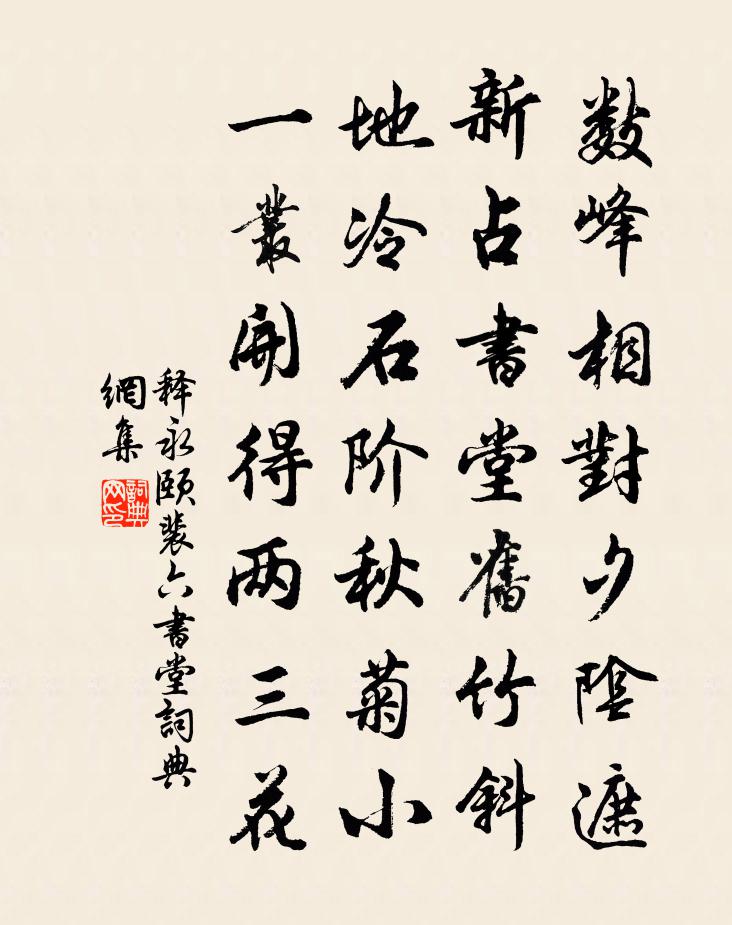 数峰相對夕陰遮
新占書堂舊竹斜
地冷石阶秋菊小
一叢開得两三花
释永頤裴六書堂詞典
網集
詞典网印